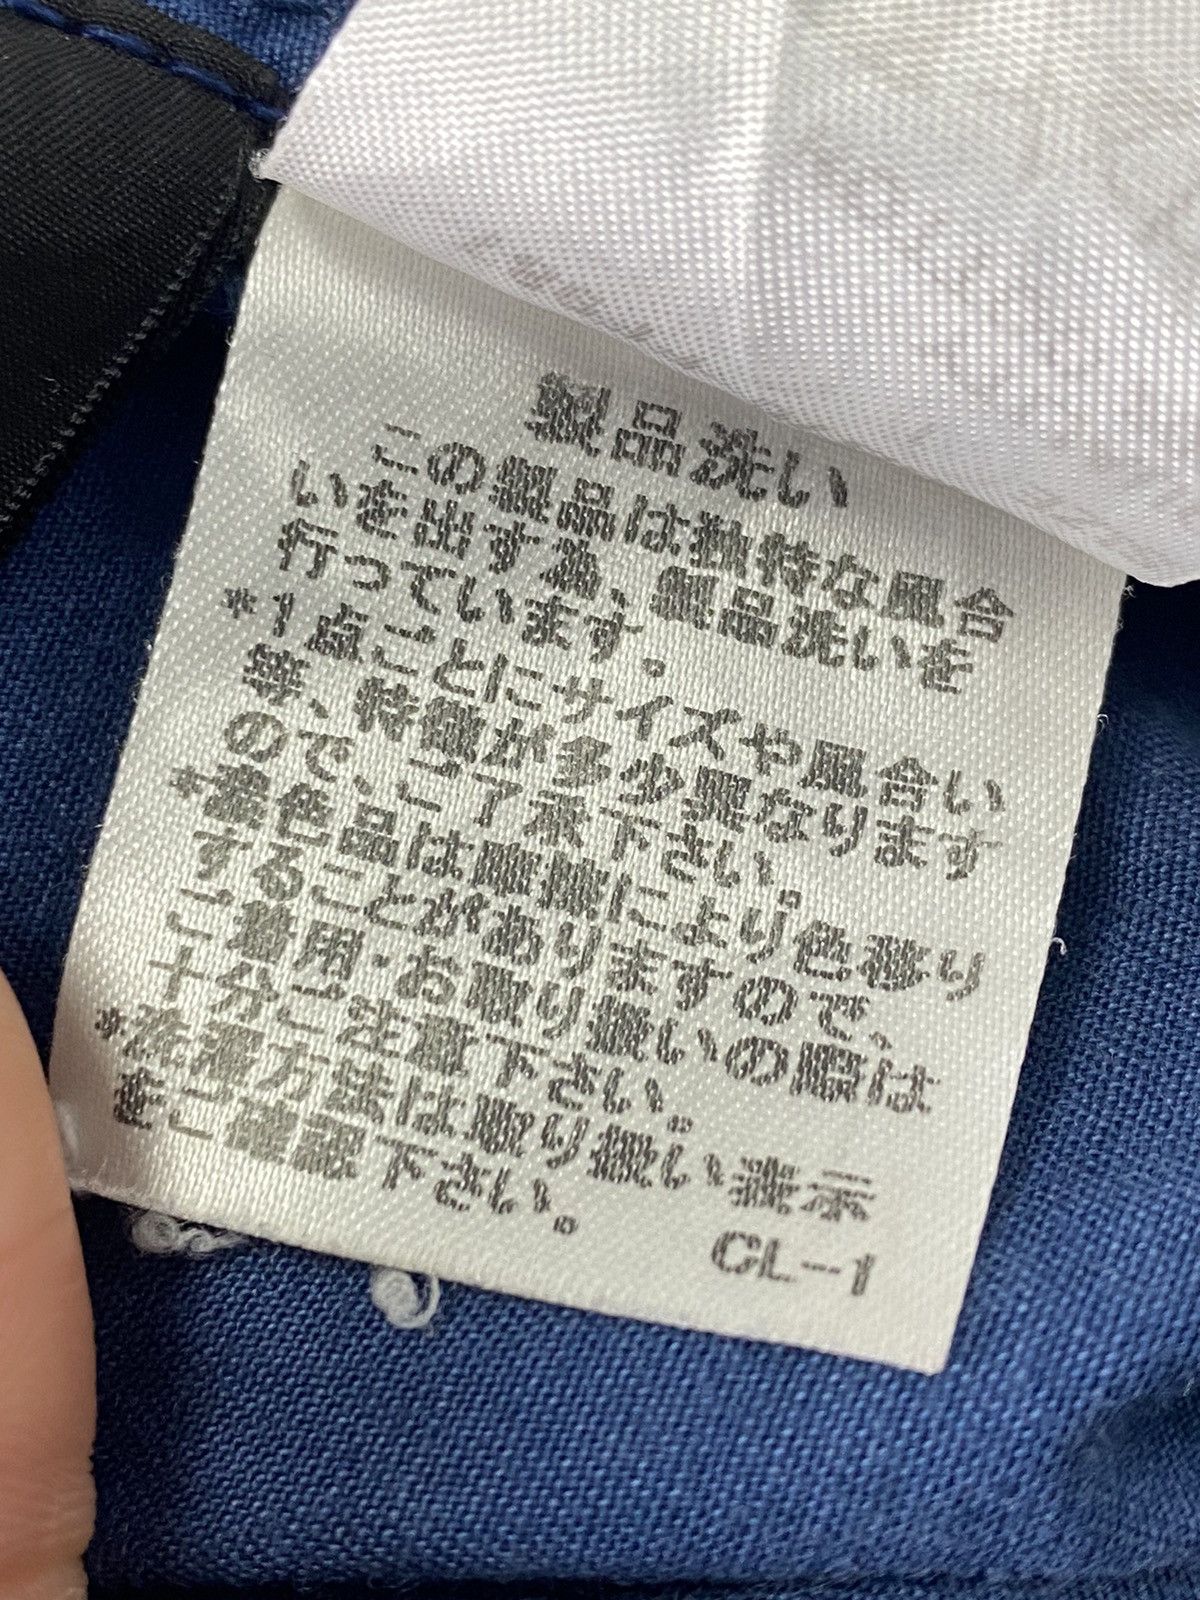 製品洗い
この製品は独特な風合
いを出す為、製品洗いを
行っています。
*1点ごとにサイズや風合い
等、特徴が多少異なります
ので、ご了承下さい。
*濃色品は摩擦により色移り
することがありますので、
ご着用・お取り扱いの際は
十分ご注意下さい。
*洗濯方法は取り扱い表示
をご確認下さい。
CL-1